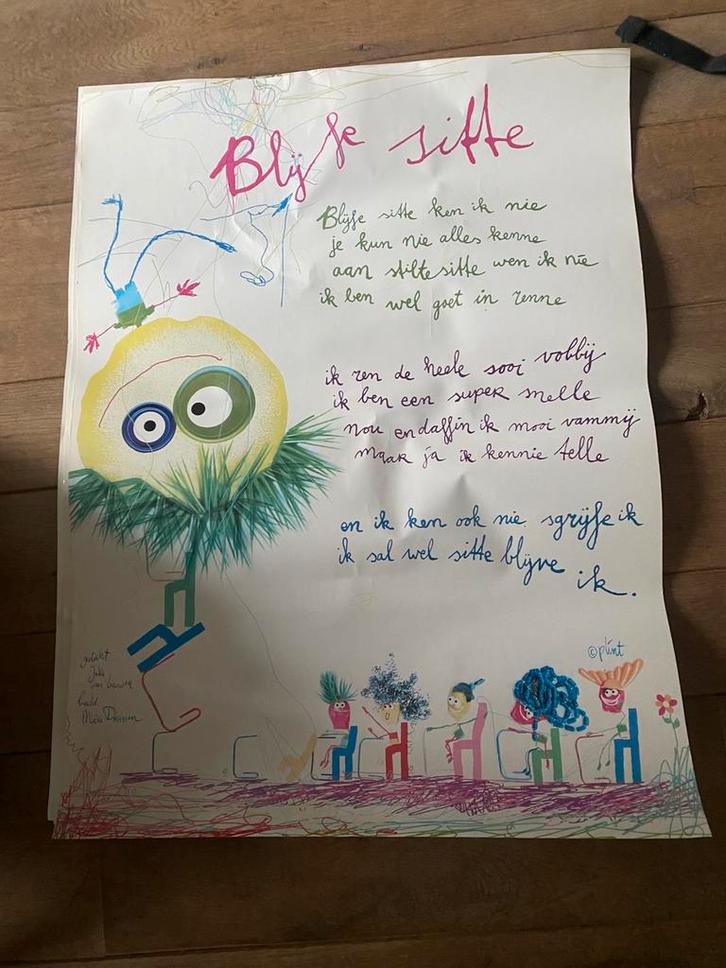 Blijfe sitte
Blijfe sitte ken ik nie
je kun nie alles kenne
aan stiltesitte wen ik nie
ik ben wel goet in renne
ik ren de heele sooi vobbij
ik ben een super snelle
nou en daffin ik mooi vammij
maar ja ik kennie telle
en ik ken ook nie sgrijfe ik
ik sal wel sitte blijve
ik.
©plint
gedicht
beeld